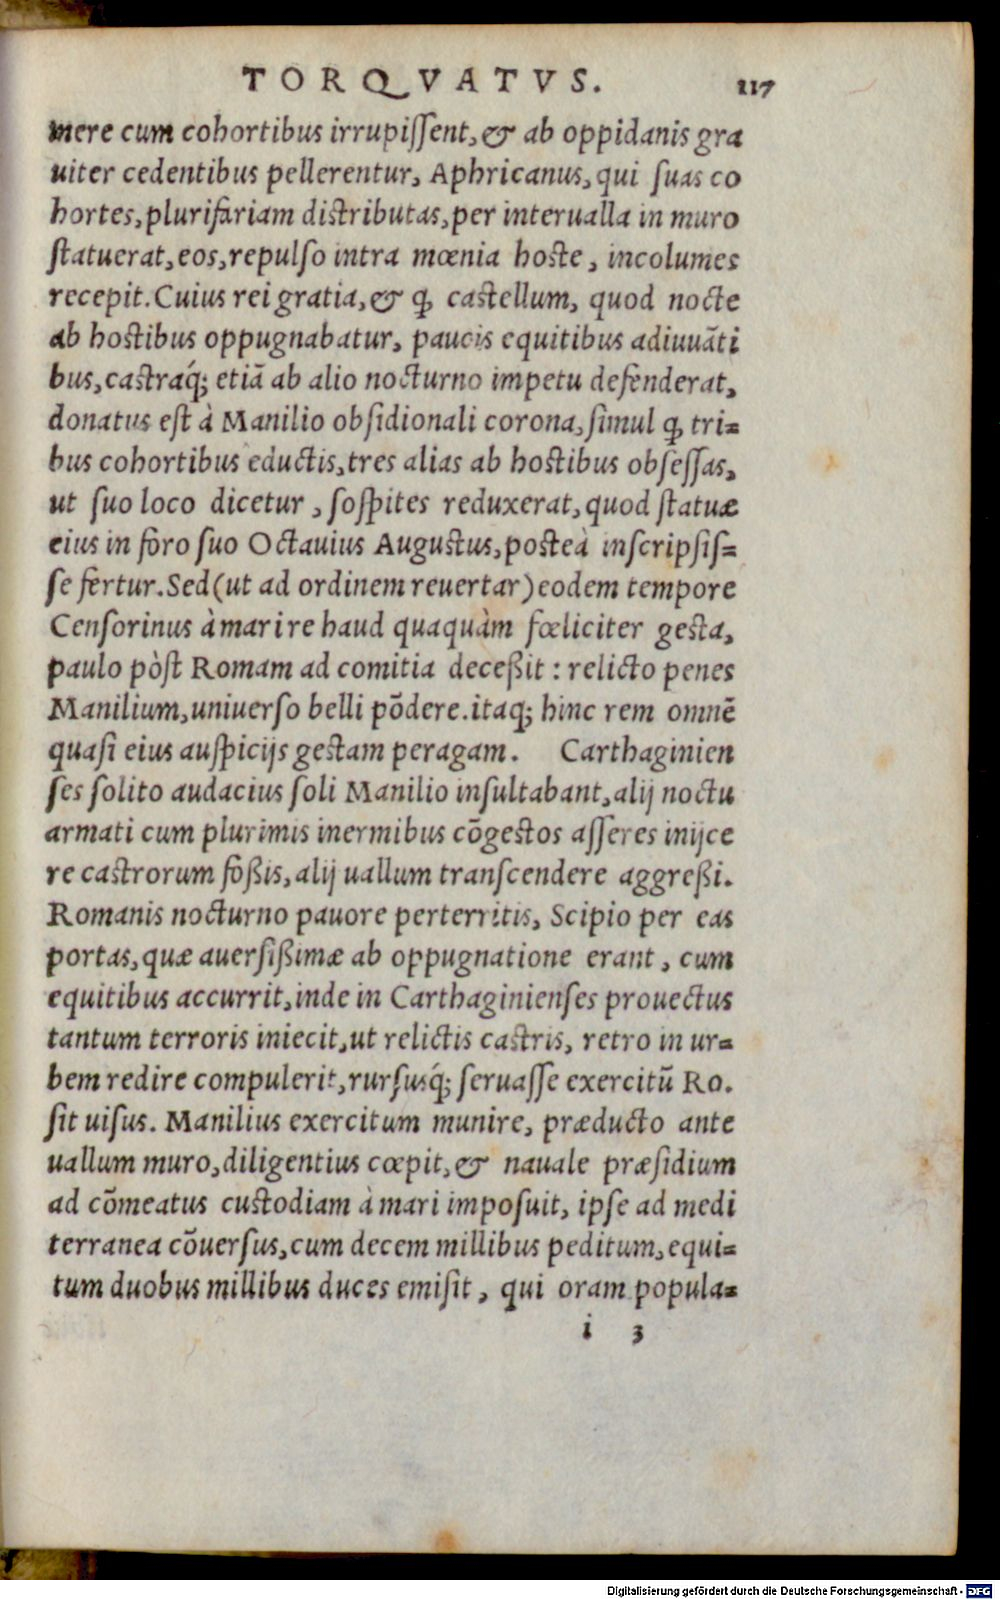 TORQVATVS. 117
mere cum cohortibus irrupiſſent, & ab oppidanis gra
uiter cedentibus pellerentur, Aphricanus, qui ſuas co
hortes, plurifariam diſtributas, per interualla in muro
ſtatuerat, eos, repulſo intra mœnia hoſte, incolumes
recepit. Cuius rei gratia, & ꝙ caſtellum, quod nocte
ab hoſtibus oppugnabatur, paucis equitibus adiuuãti
bus, caſtraq́; etiã ab alio nocturno impetu defenderat,
donatus eſt à Manilio obſidionali corona, ſimul ꝙ tri=
bus cohortibus eductis, tres alias ab hoſtibus obſeſſas,
ut ſuo loco dicetur, ſoſpites reduxerat, quod ſtatuæ
eius in foro ſuo Octauius Auguſtus, poſteà inſcripſiſ=
ſe fertur. Sed (ut ad ordinem reuertar) eodem tempore
Cenſorinus à mari re haud quaquàm fœliciter geſta,
paulo pòſt Romam ad comitia deceßit: relicto penes
Manilium, uniuerſo belli põdere. itaq; hinc rem omnẽ
quaſi eius auſpicijs geſtam peragam. Carthaginien
ſes ſolito audacius ſoli Manilio inſultabant, alij noctu
armati cum plurimis inermibus cõgeſtos aſſeres inijce
re caſtrorum foßis, alij uallum tranſcendere aggreßi.
Romanis nocturno pauore perterritis, Scipio per eas
portas, quæ auerſißimæ ab oppugnatione erant, cum
equitibus accurrit, inde in Carthaginienſes prouectus
tantum terroris iniecit, ut relictis caſtris, retro in ur=
bem redire compulerit, rurſusq́; ſeruaſſe exercitũ Ro.
ſit uiſus. Manilius exercitum munire, præducto ante
uallum muro, diligentius cœpit, & nauale præſidium
ad cõmeatus cuſtodiam à mari impoſuit, ipſe ad medi
terranea cõuerſus, cum decem millibus peditum, equi=
tum duobus millibus duces emiſit, qui oram popula=
i 3
Digitalisierung gefördert durch die Deutsche Forschungsgemeinschaft - DFG